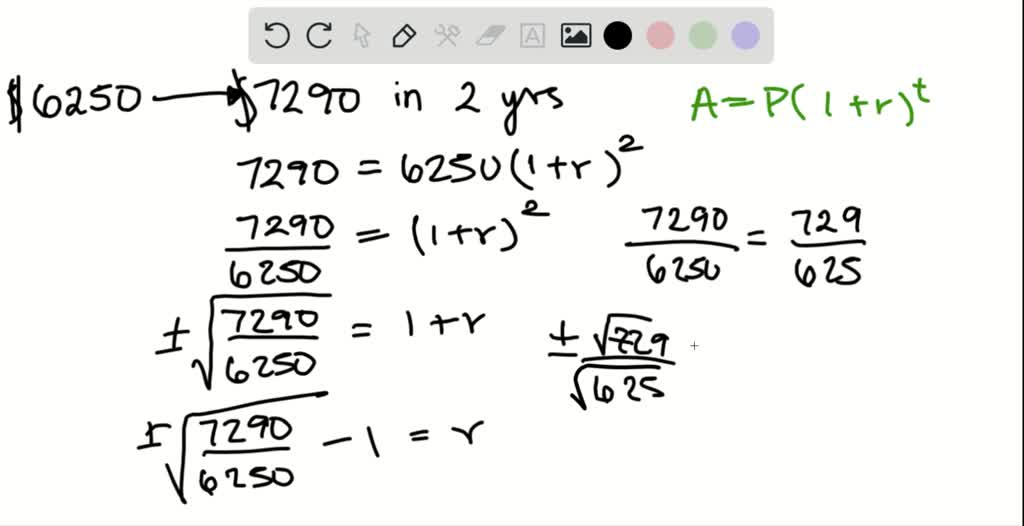 $6250 → $7290 in 2 yrs
A = P(1+r)^t
7290 = 6250(1+r)^2
7290/6250 = (1+r)^2
7290/6250 = 729/625
±√(7290/6250) = 1+r
±√729/√625
±√(7290/6250) - 1 = r